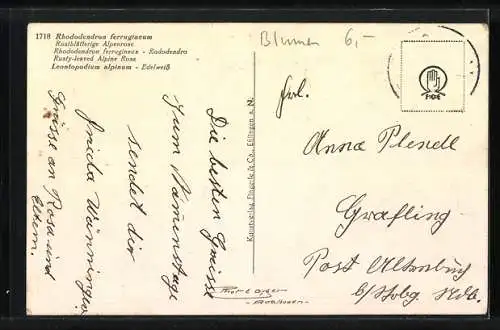 1718 Rhododendron ferrugineum
Rostblättrige Alpenrose
Rhododendron ferrugineux - Rododendro
Rusty-leaved Alpine Rose
Leontopodium alpinum - Edelweiß
Blumen 6,-
Die besten Grüsse
zum Namenstage
sendet dir
Frieda
Grüsse an Rosa und
Eltern.
Kunstverlag & Co., Eßlingen a. N.
Frl.
Anna Plendl
Grafling
Post